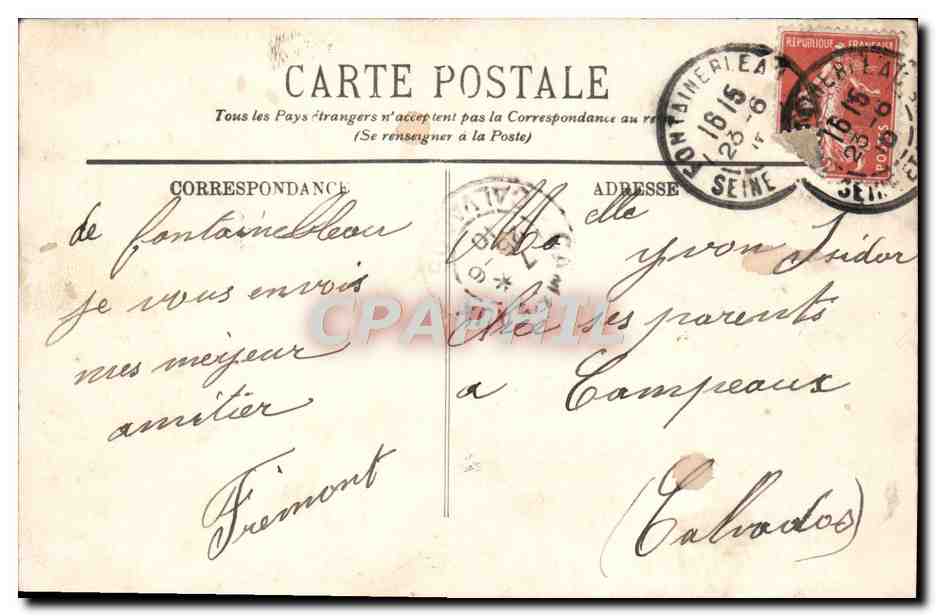 CARTE POSTALE
Tous les Pays étrangers n'acceptent pas la Correspondance au
(Se renseigner à la Poste)
CORRESPONDANCE
de fontainebleau
je vous envois
mes meijeur
amitier
Frémont
ADRESSE
Melle
yvon Isidor
Chez ses parents
a Campeaux
(Calvados)
REPUBLIQUE FRANÇAISE
POSTES
FONTAINEBLEAU
16 15
23 -6
SEINE
16 15
23 -6
SEINE
CALVA
CPAPHIL